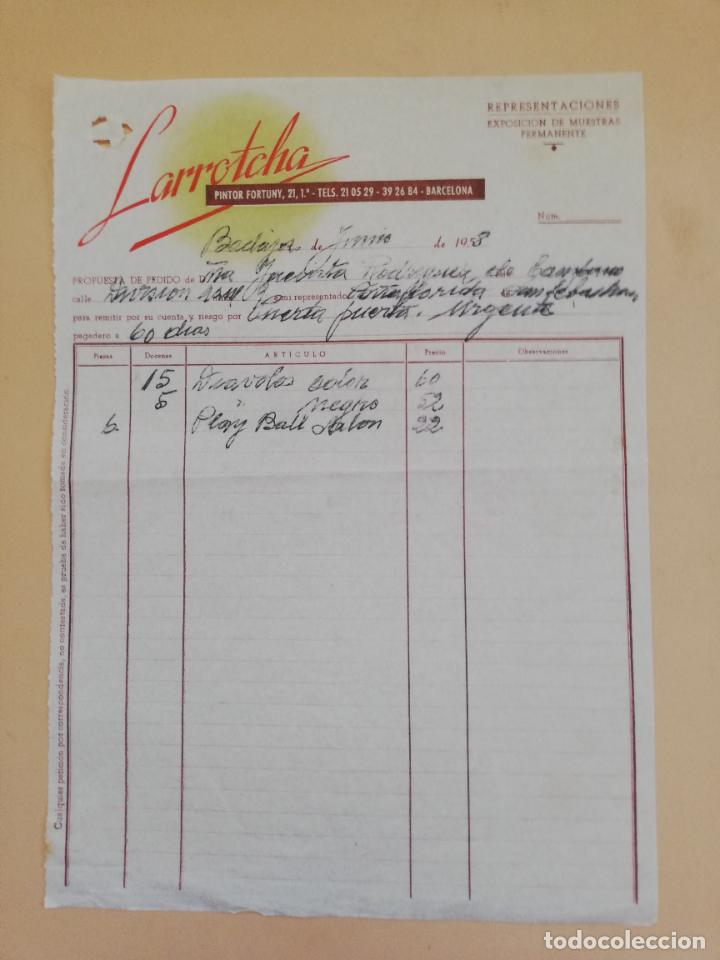 Larrotcha
PINTOR FORTUNY, 21, 1.º - TELS. 21 05 29 - 39 26 84 - BARCELONA
REPRESENTACIONES
EXPOSICION DE MUESTRAS
PERMANENTE
Núm.
de Junio de 195
PROPUESTA DE PEDIDO de Rodriguez de
calle Division Azul mi representado
para remitir por su cuenta y riesgo por puerta. Urgente
pagadero a 60 dias
Piezas Docenas ARTICULO Precio Observaciones
15 Diavolos color 60
5 " negro 52
6 Play Ball Salon 22
Cualquier petición por correspondencia, no contestada, es prueba de haber sido tomada en consideración.
todocoleccion.net